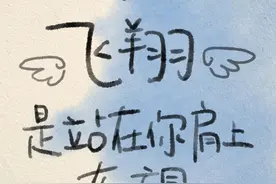 飞翔
是站在你肩上